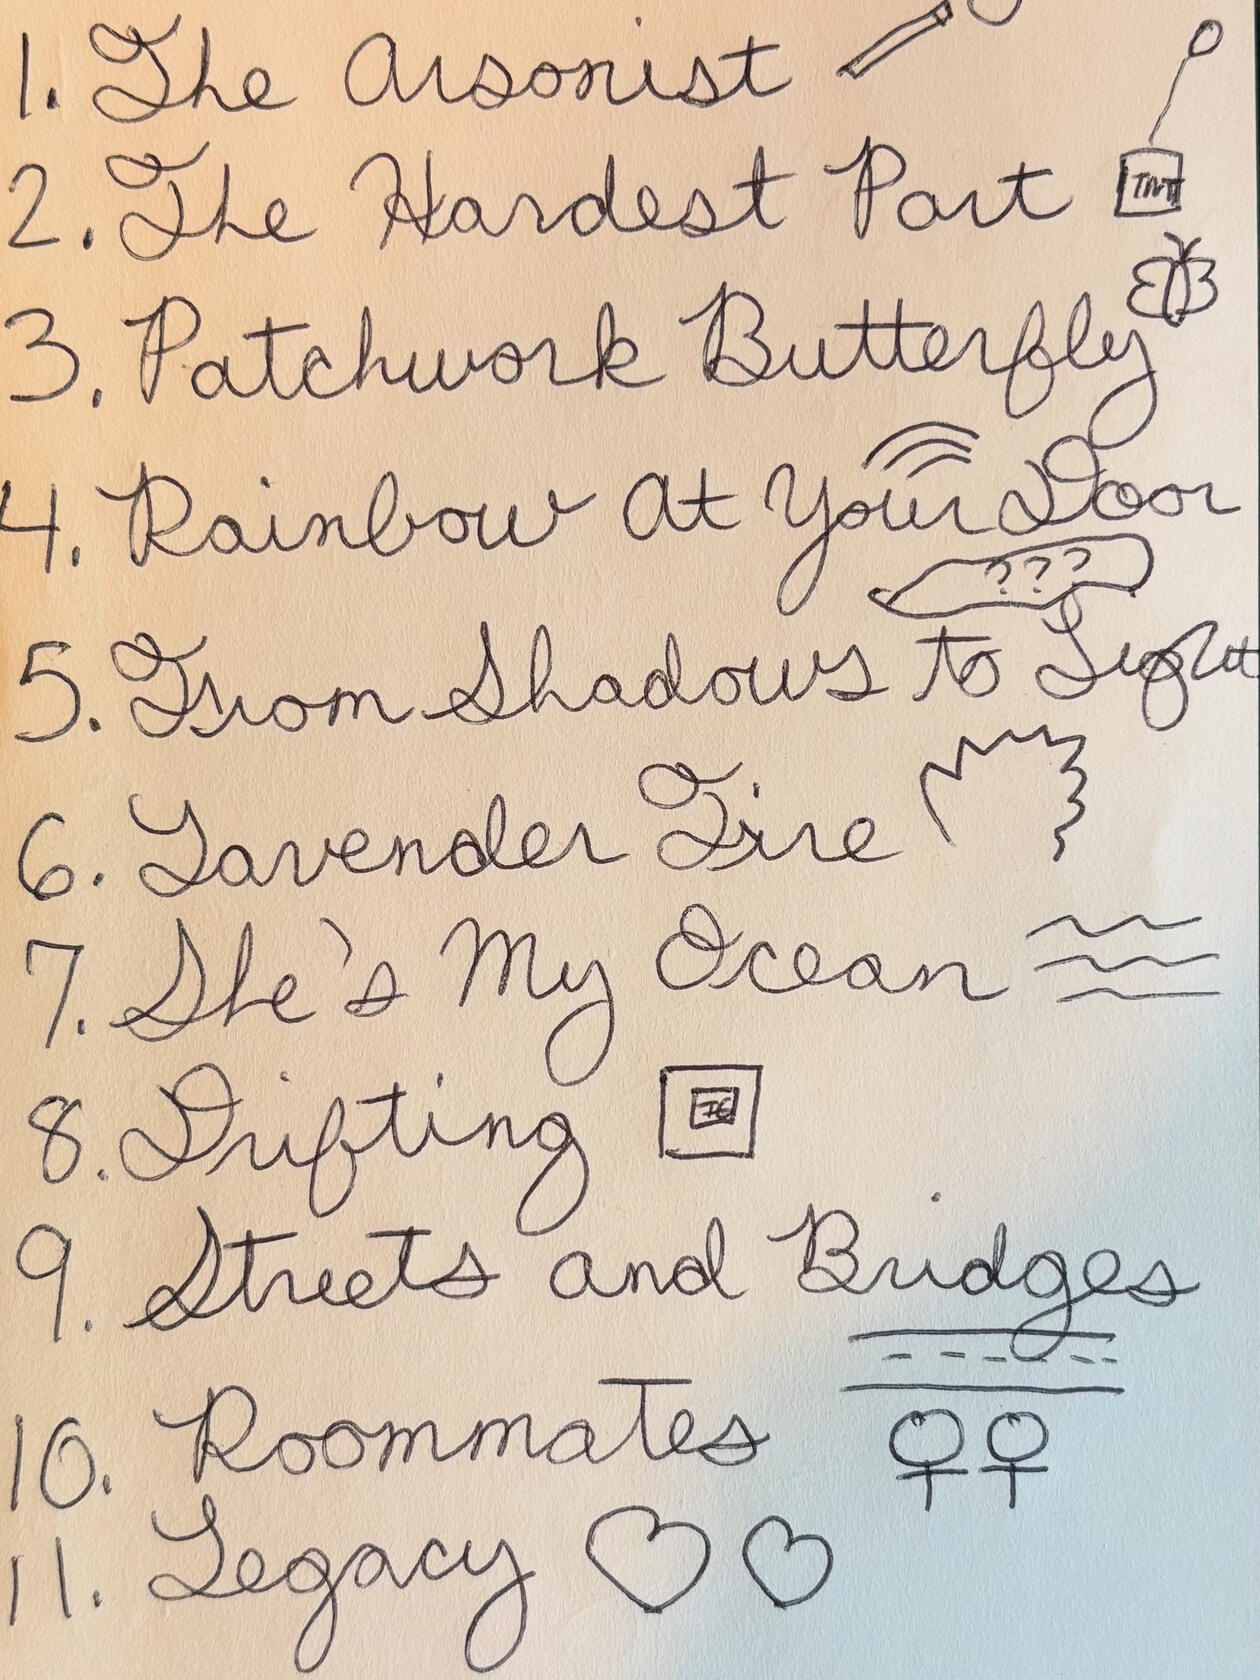 1. The Arsonist
2. The Hardest Part TNT
3. Patchwork Butterfly
4. Rainbow At Your Door
???
5. From Shadows to Light
6. Lavender Fire
7. She's My Ocean
8. Drifting
9. Streets and Bridges
10. Roommates
11. Legacy